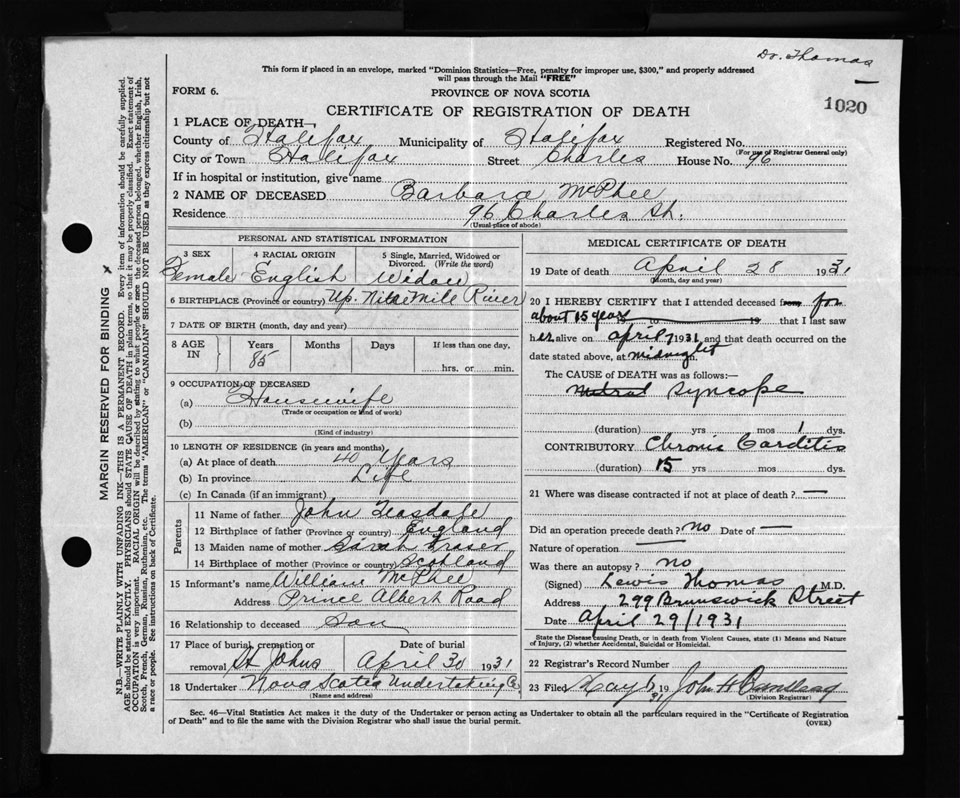 Dr. Thomas
This form if placed in an envelope, marked "Dominion Statistics—Free, penalty for improper use, $300," and properly addressed
will pass through the Mail "FREE"
FORM 6. PROVINCE OF NOVA SCOTIA
1020
CERTIFICATE OF REGISTRATION OF DEATH
1 PLACE OF DEATH—
County of Halifax Municipality of Halifax Registered No.
(For use of Registrar General only)
City or Town Halifax Street Charles House No. 96
If in hospital or institution, give name
2 NAME OF DECEASED Barbara McPhee
Residence 96 Charles St.
(Usual place of abode)
PERSONAL AND STATISTICAL INFORMATION
3 SEX 4 RACIAL ORIGIN 5 Single, Married, Widowed or
Divorced. (Write the word)
Female English Widow
6 BIRTHPLACE (Province or country) Up. Nine Mile River
7 DATE OF BIRTH (month, day and year)
8 AGE IN Years Months Days If less than one day,
85 hrs. or min.
9 OCCUPATION OF DECEASED
(a) Housewife
(Trade or occupation or kind of work)
(b)
(Kind of industry)
10 LENGTH OF RESIDENCE (in years and months)
(a) At place of death 40 Years
(b) In province Life
(c) In Canada (if an immigrant)
Parents
11 Name of father John Teasdale
12 Birthplace of father (Province or country) England
13 Maiden name of mother Sarah Fraser
14 Birthplace of mother (Province or country) Scotland
15 Informant's name William McPhee
Address Prince Albert Road
16 Relationship to deceased Son
17 Place of burial, cremation or Date of burial
removal St Johns April 30 1931
18 Undertaker Nova Scotia Undertaking Co.
(Name and address)
MEDICAL CERTIFICATE OF DEATH
19 Date of death April 28 1931
(Month, day and year)
20 I HEREBY CERTIFY that I attended deceased from for
about 15 years to 19 that I last saw
her alive on april 7 1931 and that death occurred on the
date stated above, at midnight
The CAUSE of DEATH was as follows:—
Syncope
(duration) yrs mos 1 dys.
CONTRIBUTORY Chronic Carditis
(duration) 15 yrs mos dys.
21 Where was disease contracted if not at place of death? —
Did an operation precede death? no Date of —
Nature of operation —
Was there an autopsy? no
(Signed) Lewis Thomas M.D.
Address 299 Brunswick Street
Date april 29/1931
State the Disease causing Death, or in death from Violent Causes, state (1) Means and Nature
of Injury, (2) whether Accidental, Suicidal or Homicidal.
22 Registrar's Record Number
23 Filed May 1 1931 John H
(Division Registrar)
Sec. 46—Vital Statistics Act makes it the duty of the Undertaker or person acting as Undertaker to obtain all the particulars required in the "Certificate of Registration
of Death" and to file the same with the Division Registrar who shall issue the burial permit.
(OVER)
MARGIN RESERVED FOR BINDING
N.B.—WRITE PLAINLY WITH UNFADING INK—THIS IS A PERMANENT RECORD. Every item of information should be carefully supplied.
AGE should be stated EXACTLY. PHYSICIANS should STATE CAUSE OF DEATH in plain terms, so that it may be properly classified. Exact statement of
OCCUPATION is very important. RACIAL ORIGIN will be described by stating to what people or race the deceased person belonged, whether English, Irish,
Scotch, French, German, Russian, Ruthenian, etc. The terms "AMERICAN" or "CANADIAN" SHOULD NOT BE USED as they express citizenship but not
a race or people. See instructions on back of Certificate.